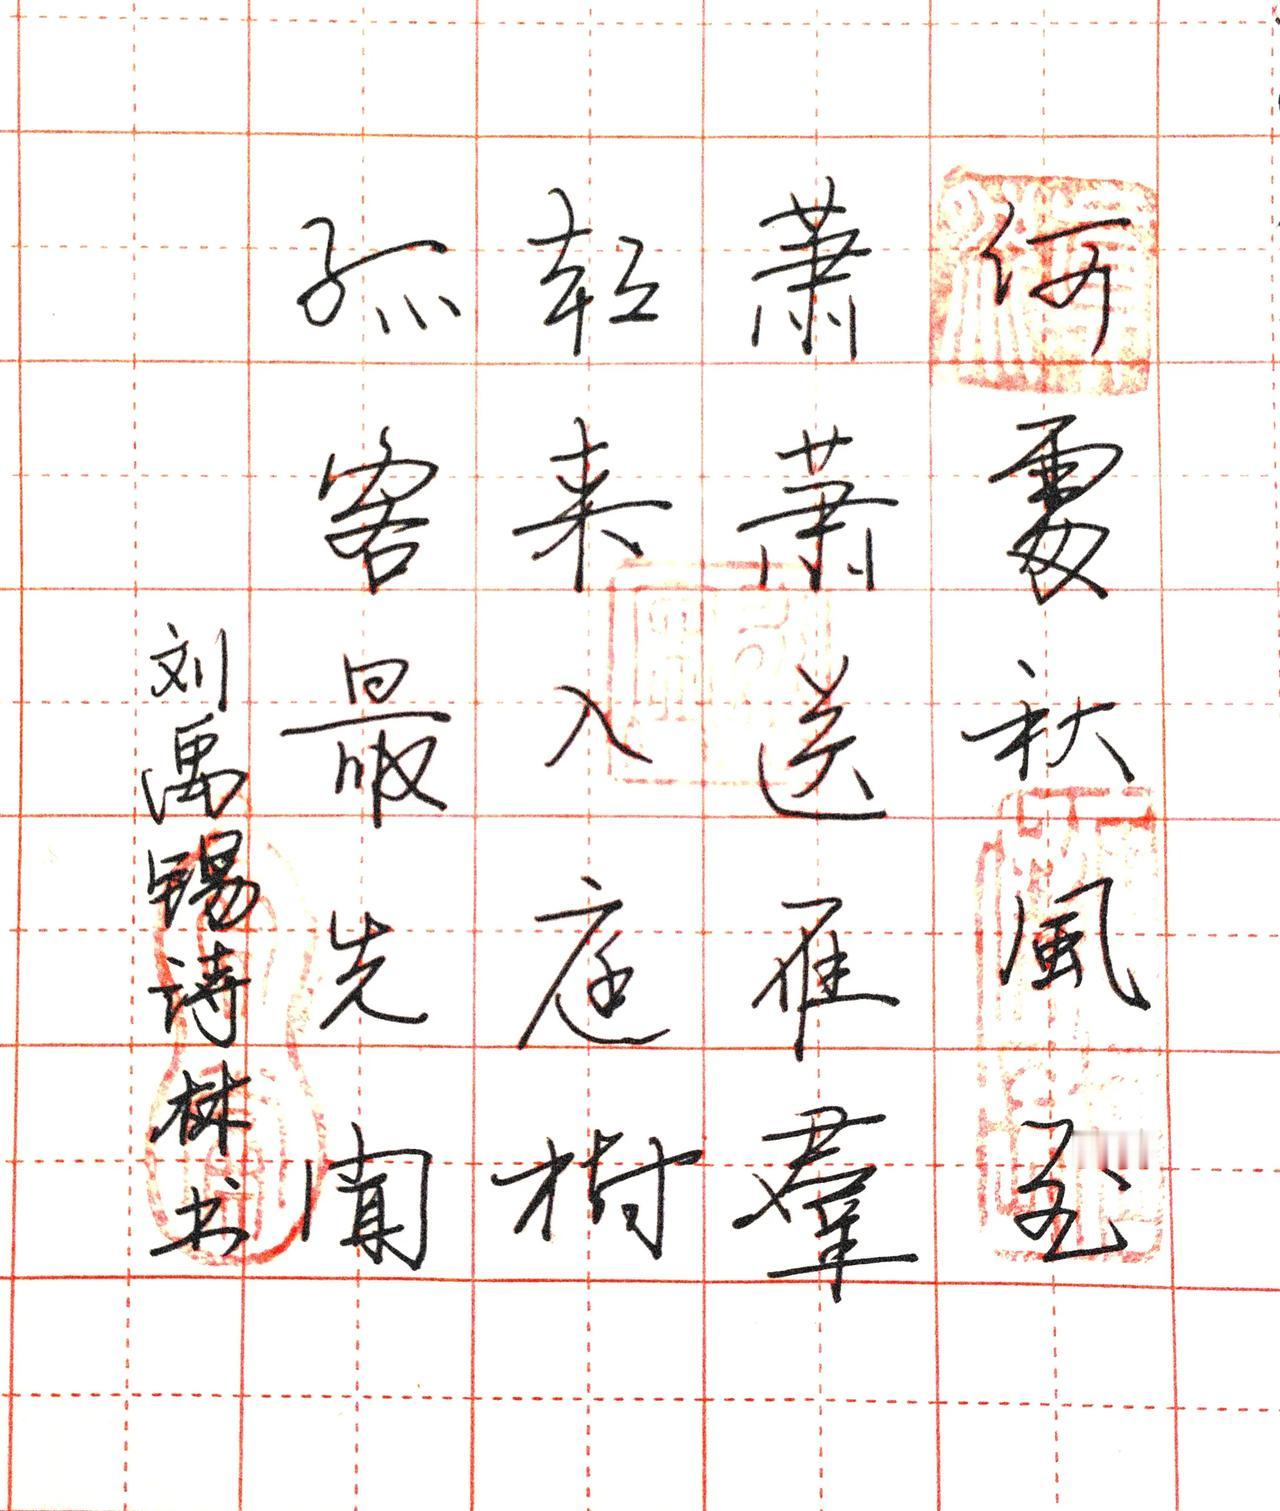 何處秋風至
蕭蕭送雁羣
朝来入庭樹
孤客最先闻
刘禹锡诗林书